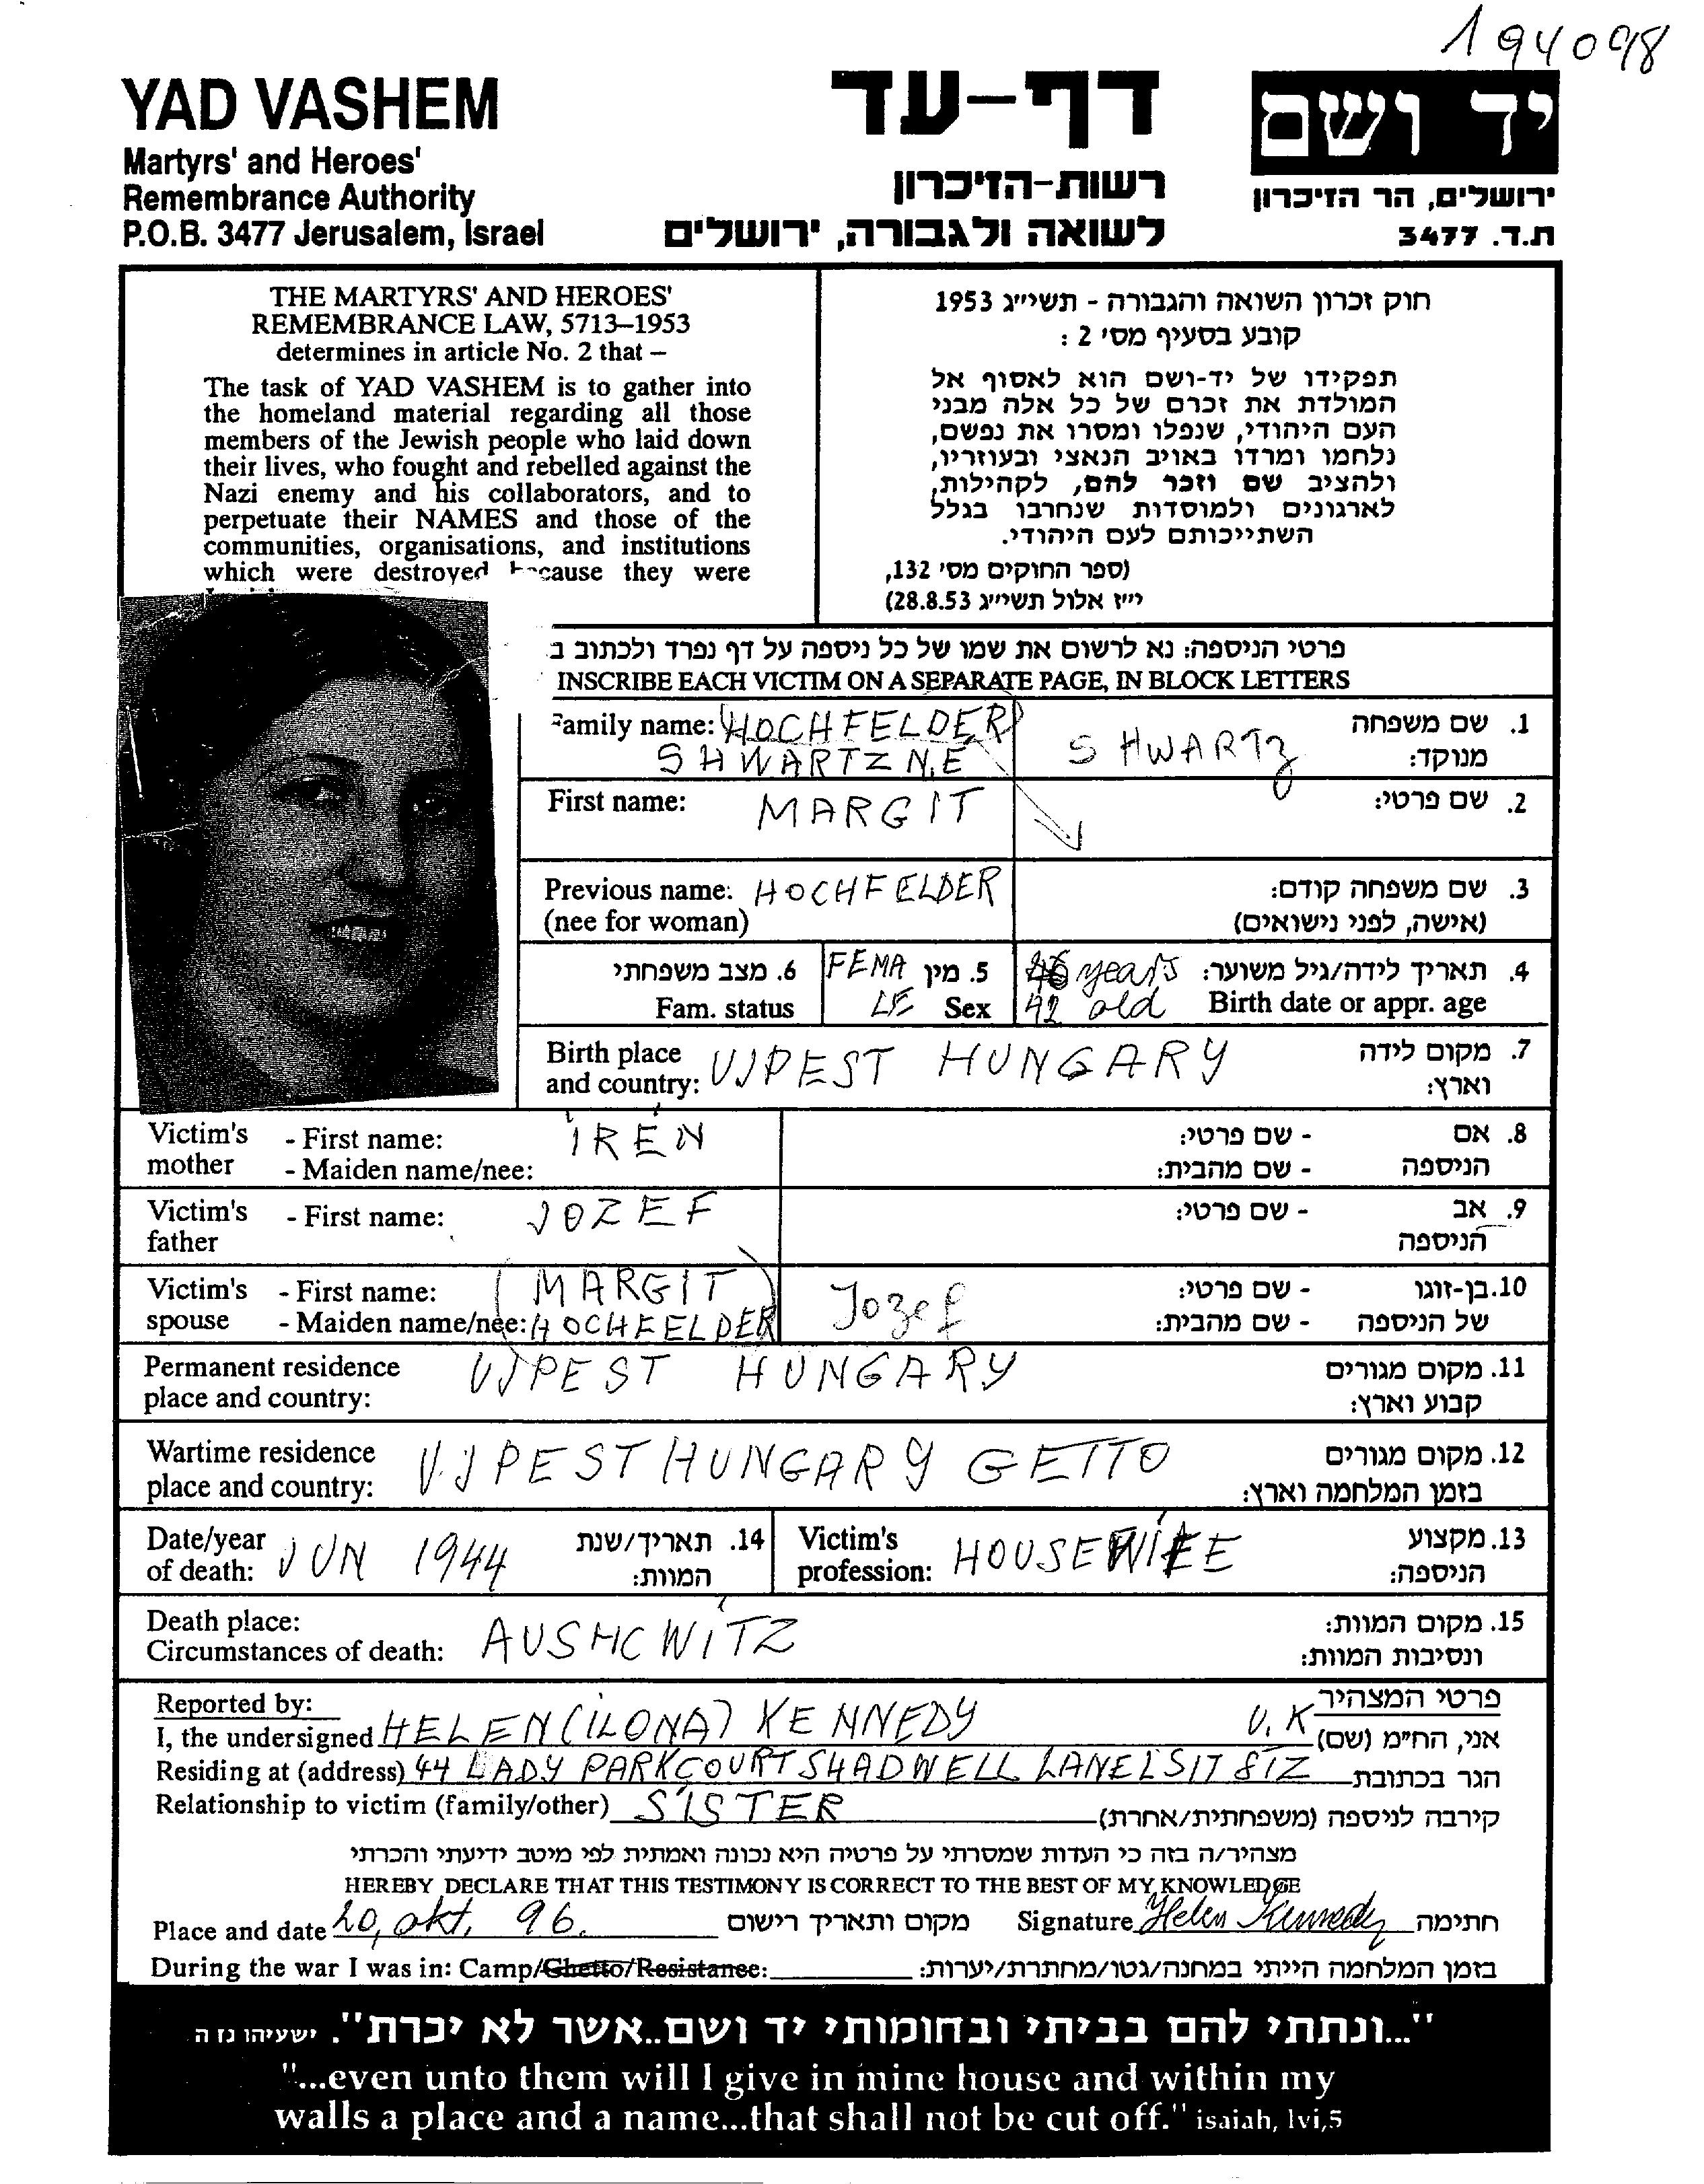 194098
YAD VASHEM
Martyrs' and Heroes'
Remembrance Authority
P.O.B. 3477 Jerusalem, Israel
דף-עד
רשות-הזיכרון
לשואה ולגבורה, ירושלים
יד ושם
ירושלים, הר הזיכרון
ת.ד. 3477
THE MARTYRS' AND HEROES'
REMEMBRANCE LAW, 5713–1953
determines in article No. 2 that –
The task of YAD VASHEM is to gather into
the homeland material regarding all those
members of the Jewish people who laid down
their lives, who fought and rebelled against the
Nazi enemy and his collaborators, and to
perpetuate their NAMES and those of the
communities, organisations, and institutions
which were destroyed because they were
חוק זכרון השואה והגבורה - תשי״ג 1953
קובע בסעיף מס׳ 2 :
תפקידו של יד-ושם הוא לאסוף אל
המולדת את זכרם של כל אלה מבני
העם היהודי, שנפלו ומסרו את נפשם,
נלחמו ומרדו באויב הנאצי ובעוזריו,
ולהציב שם וזכר להם, לקהילות,
לארגונים ולמוסדות שנחרבו בגלל
השתייכותם לעם היהודי.
(ספר החוקים מס׳ 132,
י״ז אלול תשי״ג 28.8.53)
פרטי הניספה: נא לרשום את שמו של כל ניספה על דף נפרד ולכתוב ב
INSCRIBE EACH VICTIM ON A SEPARATE PAGE, IN BLOCK LETTERS
Family name: HOCHFELDER
SHWARTZNE
SHWARTZ
1. שם משפחה
מנוקד:
First name: MARGIT
2. שם פרטי:
Previous name: HOCHFELDER
(nee for woman)
3. שם משפחה קודם:
(אישה, לפני נישואים)
6. מצב משפחתי
Fam. status
FEMA 5. מין
LE Sex
46 years 4. תאריך לידה/גיל משוער:
42 old Birth date or appr. age
Birth place
and country: UJPEST HUNGARY
7. מקום לידה
וארץ:
Victim's - First name: IREN
mother - Maiden name/nee:
8. אם - שם פרטי:
הניספה - שם מהבית:
Victim's - First name: JOZEF
father
9. אב - שם פרטי:
הניספה
Victim's - First name: (MARGIT
spouse - Maiden name/nee: HOCHFELDER)
Jozef
10. בן-זוגו - שם פרטי:
של הניספה - שם מהבית:
Permanent residence
place and country: UJPEST HUNGARY
11. מקום מגורים
קבוע וארץ:
Wartime residence
place and country: UJPEST HUNGARY GETTO
12. מקום מגורים
בזמן המלחמה וארץ:
Date/year
of death: JUN 1944
14. תאריך/שנת
המוות:
Victim's
profession: HOUSEWIFE
13. מקצוע
הניספה:
Death place:
Circumstances of death: AUSHCWITZ
15. מקום המוות:
ונסיבות המוות:
Reported by:
פרטי המצהיר
I, the undersigned HELEN (ILONA) KENNEDY U.K אני, הח״מ (שם)
Residing at (address) 44 LADY PARKCOURT SHADWELL LANE LS17 8TZ הגר בכתובת
Relationship to victim (family/other) SISTER קירבה לניספה (משפחתית/אחרת)
מצהיר/ה בזה כי העדות שמסרתי על פרטיה היא נכונה ואמתית לפי מיטב ידיעתי והכרתי
HEREBY DECLARE THAT THIS TESTIMONY IS CORRECT TO THE BEST OF MY KNOWLEDGE
Place and date 20, okt, 96. מקום ותאריך רישום Signature Helen Kennedy חתימה
During the war I was in: Camp/Ghetto/Resistance: בזמן המלחמה הייתי במחנה/גטו/מחתרת/יערות:
"...ונתתי להם בביתי ובחומותי יד ושם..אשר לא יכרת". ישעיהו נז ה
"...even unto them will I give in mine house and within my
walls a place and a name...that shall not be cut off." isaiah, lvi,5